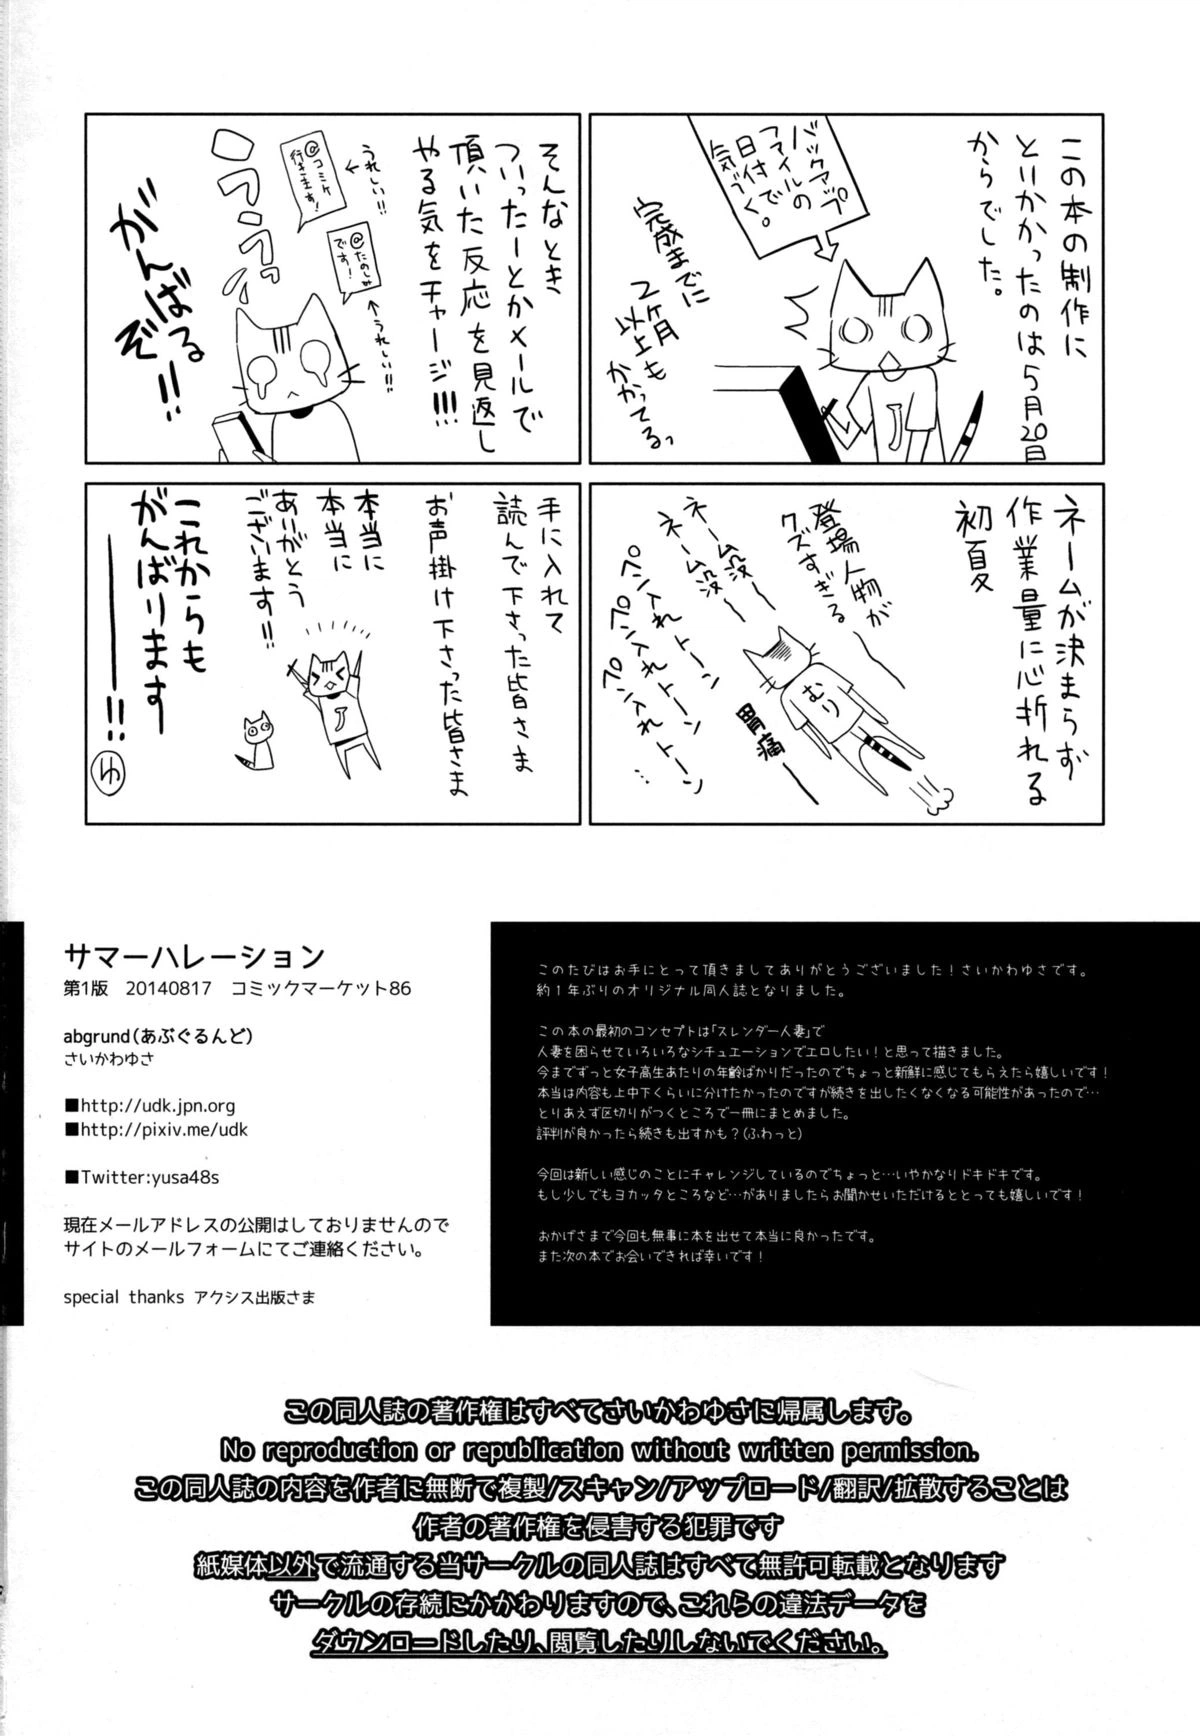 この本の制作に
とりかかったのは5月20日
からでした。
バックアップ
ファイルの
日付で
気づく。
完成までに
2ヶ月
以上も
かかってるっ
そんなとき
ついったーとかメールで
頂いた反応を見返し
やる気をチャージ!!!
うれしい!!
@コミケ
行きます!
@たのしみ
です!
うれしい!!
がんばる
ぞ!!
ネームが決まらず
作業量に心折れる
初夏
登場人物が
クズすぎる
ネーム没ー
ネーム没ー
ペン入れトーン
ペン入れトーン
ペン入れトーン…
むり
胃痛ー
手に入れて
読んで下さった皆さま
お声掛け下さった皆さま
本当に
本当に
ありがとう
ございます!!
これからも
がんばります
――!!
ゆ
サマーハレーション
第1版 20140817 コミックマーケット86
abgrund(あぶぐるんど)
さいかわゆさ
■http://udk.jpn.org
■http://pixiv.me/udk
■Twitter:yusa48s
現在メールアドレスの公開はしておりませんので
サイトのメールフォームにてご連絡ください。
special thanks アクシス出版さま
このたびはお手にとって頂きましてありがとうございました!さいかわゆさです。
約1年ぶりのオリジナル同人誌となりました。
この本の最初のコンセプトは「スレンダー人妻」で
人妻を困らせていろいろなシチュエーションでエロしたい!と思って描きました。
今までずっと女子高生あたりの年齢ばかりだったのでちょっと新鮮に感じてもらえたら嬉しいです!
本当は内容も上中下くらいに分けたかったのですが続きを出したくなくなる可能性があったので…
とりあえず区切りがつくところで一冊にまとめました。
評判が良かったら続きも出すかも?(ふわっと)
今回は新しい感じのことにチャレンジしているのでちょっと…いやかなりドキドキです。
もし少しでもヨカッタところなど…がありましたらお聞かせいただけるととっても嬉しいです!
おかげさまで今回も無事に本を出せて本当に良かったです。
また次の本でお会いできれば幸いです!
この同人誌の著作権はすべてさいかわゆさに帰属します。
No reproduction or republication without written permission.
この同人誌の内容を作者に無断で複製/スキャン/アップロード/翻訳/拡散することは
作者の著作権を侵害する犯罪です
紙媒体以外で流通する当サークルの同人誌はすべて無許可転載となります
サークルの存続にかかわりますので、これらの違法データを
ダウンロードしたり、閲覧したりしないでください。